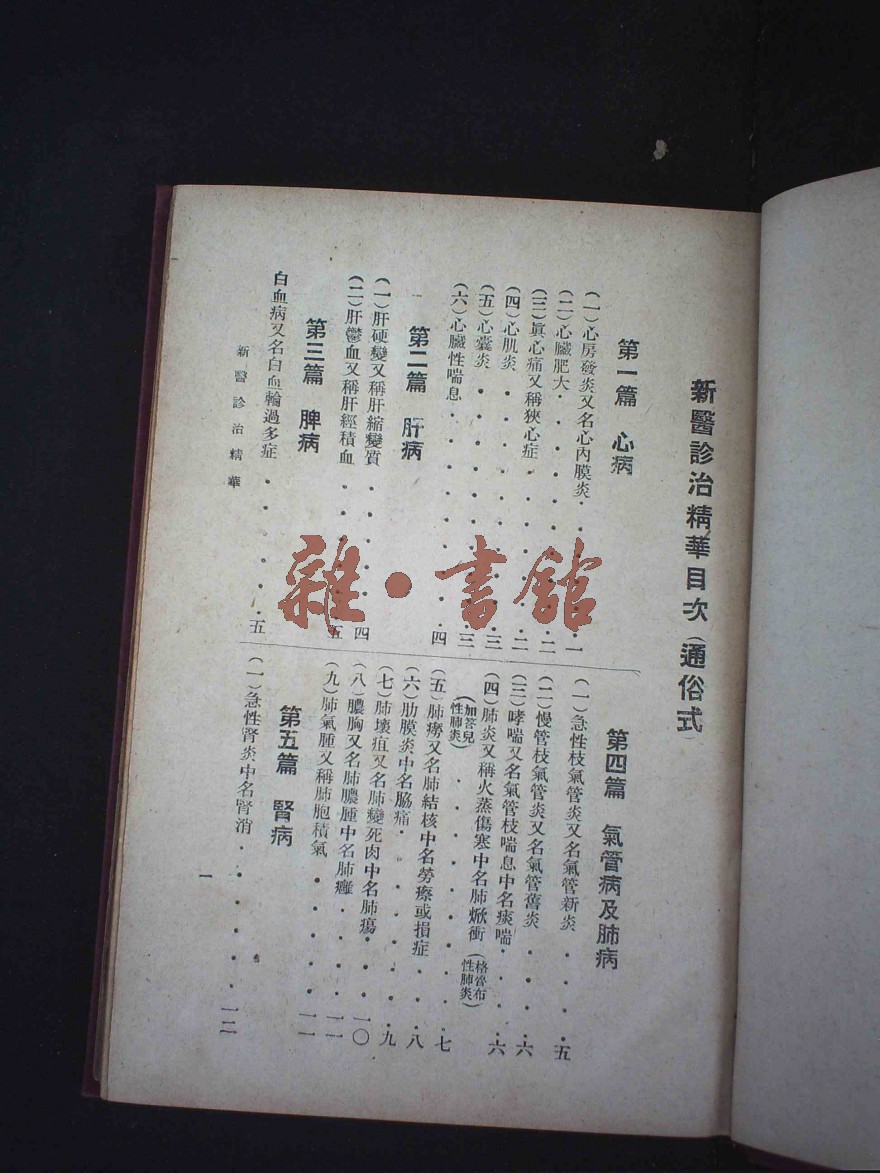 新醫診治精華目次（通俗式）
第一篇　心病
（一）心房發炎又名心內膜炎・・・・・・・一
（二）心臟肥大・・・・・・・・・・二
（三）眞心痛又稱狹心症・・・・・・・・二
（四）心肌炎・・・・・・・・・・三
（五）心囊炎・・・・・・・・・・三
（六）心臟性喘息・・・・・・・・・四
第二篇　肝病
（一）肝硬變又稱肝縮變質・・・・・・・四
（二）肝鬱血又稱肝經積血・・・・・・・五
第三篇　脾病
白血病又名白血輪過多症・・・・・・・五
第四篇　氣管病及肺病
（一）急性枝氣管炎又名氣管新炎・・・・五
（二）慢管枝氣管炎又名氣管舊炎・・・・六
（三）哮喘又名氣管枝喘息中名痰喘・・・・六
（四）肺炎又稱火蒸傷寒中名肺焮衝（格魯布性肺炎）
（加答兒性肺炎）・・・・・・・・七
（五）肺癆又名肺結核中名勞瘵或損症・・・八
（六）肋膜炎中名脇痛・・・・・・・九
（七）肺壞疽又名肺變死肉中名肺瘍・・・一〇
（八）膿胸又名肺膿腫中名肺癰・・・・一一
（九）肺氣腫又稱肺胞積氣・・・・・一一
第五篇　腎病
（一）急性腎炎中名腎消・・・・・・一二
新醫診治精華
一
雜・書館